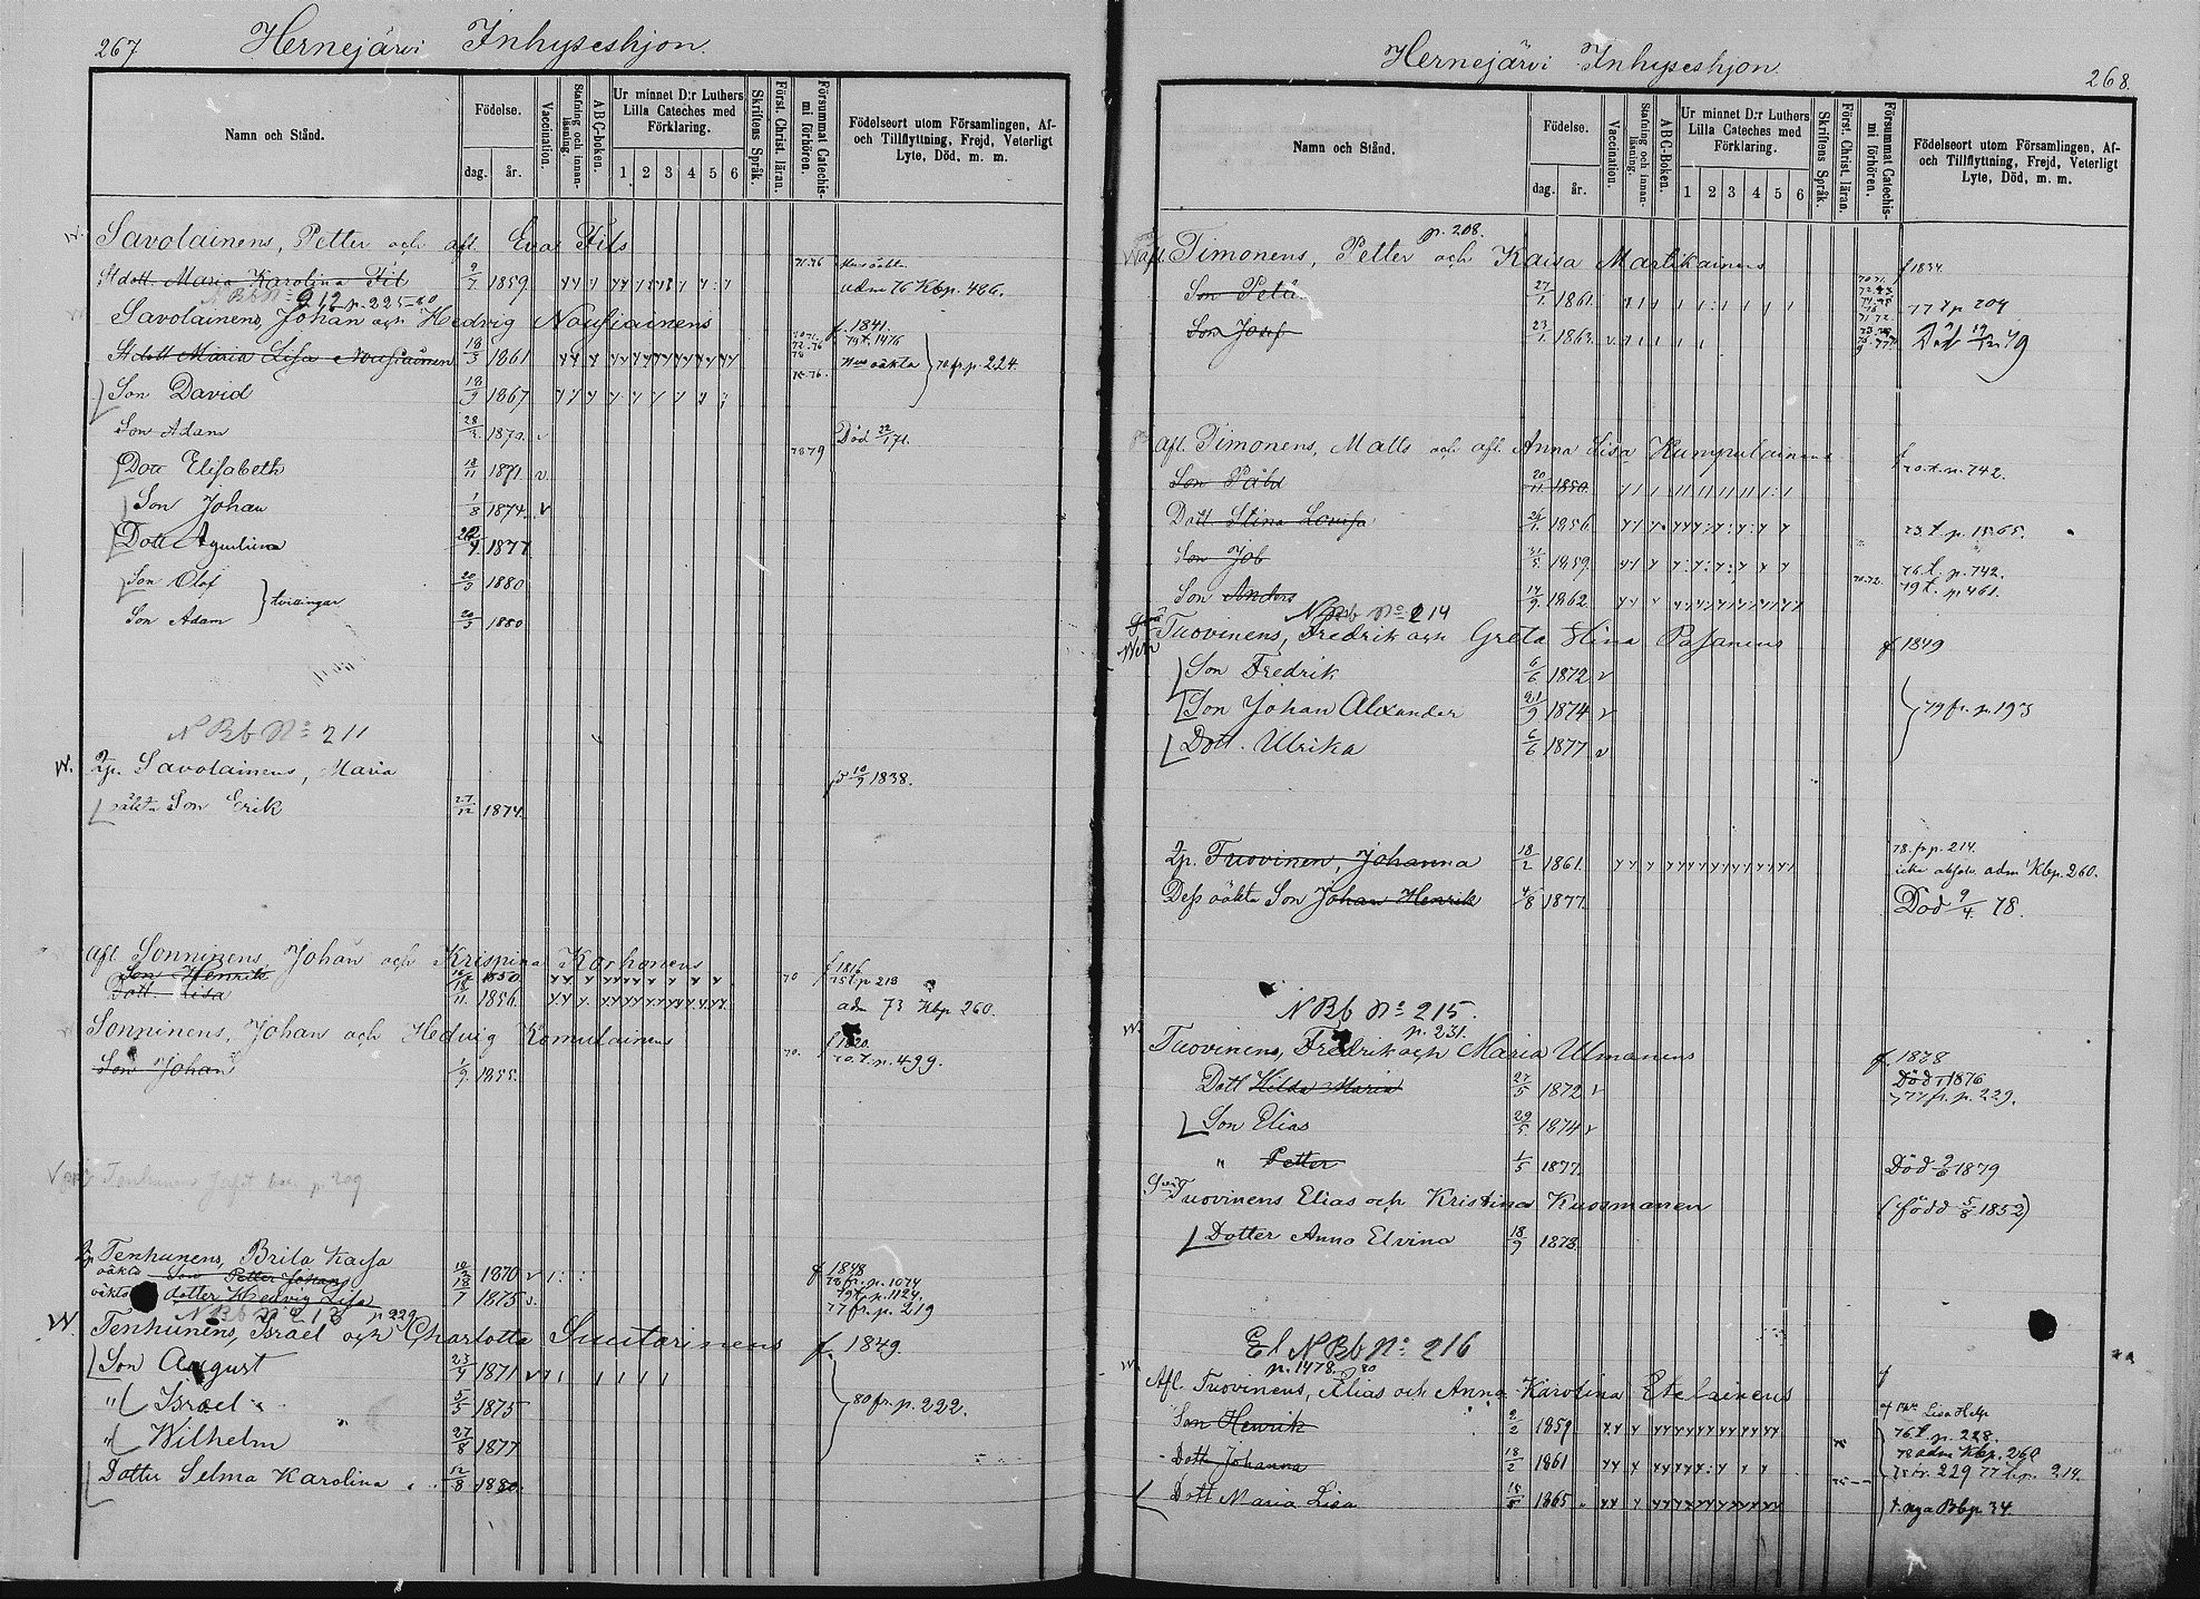 267
Hernejärvi Inhyseshjon.
Namn och Stånd.
Födelse.
dag. år.
Vaccination.
Stafning och innan-läsning.
ABC-boken.
Ur minnet D:r Luthers Lilla Cateches med Förklaring.
1 2 3 4 5 6
Skriftens Språk.
Först. Christ. läran.
Försummat Catechis-mi förhören.
Födelseort utom Församlingen, Af- och Tillflyttning, Frejd, Veterligt Lyte, Död, m. m.
W. Savolainens, Petter och afl. Eva Fils
dott. Maria Karolina Fil 9/7 1859 71.76 udm 76 Kbp. 486.
NBb No 212 p. 225-80
Savolainens, Johan och Hedvig Nousiainens f. 1841.
dott Maria Lisa Nousiainen 18/3 1861 oäkta 78 fr. p. 224.
Son David 18/9 1867 75.76.
Son Adam 28/2 1870. v Död 22/1 71.
Dott Elisabeth 18/11 1871 v. 78 79
Son Johan 1/8 1874 v
Dott 1877
Son Olof 20/3 1880
tvillingar
Son Adam 20/3 1880
NBb No 211
W. Qp. Savolainens, Maria 10/9 1838.
oäkta Son Erik 27/12 1874.
Afl. Sonninens, Johan och Krispina Korhonens f 1816
Son Henrik 1850. 70 75 t p 218
Dott. Lisa 18/11 1856. adm 73 Kbp 260.
Sonninens, Johan och Hedvig Romulainens f 1820.
Son Johan 1/9 1855. 70. 70. t. p. 499.
Tenhunen p 209
Qp Tenhunens, Brita Kaisa f 1848
oäkta Son Petter Johan 1870 v 78 fr. p. 1074 79 t. p. 1124.
oäkta dotter Hedvig Lisa 18/7 1875 v. 77 fr. p. 219
NBb No 213 p 229
W. Tenhunens, Israel och Charlotta Suutarinens f. 1849.
Son August 23/4 1871 v
" Israel 5/5 1875 80 fr. p. 222.
" Wilhelm 27/8 1877
Dotter Selma Karolina 12/8 1880.
Hernejärvi Inhyseshjon.
268.
Namn och Stånd.
Födelse.
dag. år.
Vaccination.
Stafning och innan-läsning.
ABC-Boken.
Ur minnet D:r Luthers Lilla Cateches med Förklaring.
1 2 3 4 5 6
Skriftens Språk.
Först. Christ. läran.
Försummat Catechis-mi förhören.
Födelseort utom Församlingen, Af- och Tillflyttning, Frejd, Veterligt Lyte, Död, m. m.
p. 208.
W afl. Timonens, Petter och Kaisa Martikainens f 1834.
Son 27/1 1861. 77 t p 204
Son Josef 23/1 1863. v. Död 19/12 79
Afl. Timonens, Matts och afl. Anna Lisa Kumpulainens f
Son Påhl 20/11 1850. 70. t. p. 742.
Dott Stina Lovisa 26/1 1856 73. t. p. 1565.
Son Job 31/5 1859 76. t. p. 742.
Son Anders 14/9 1862 70.72. 79 t. p 461.
NBb No 214
Tuovinens, Fredrik och Greta Stina Pasanens f 1849
Son Fredrik 6/6 1872 v
Son Johan Alexander 21/9 1874 v 79 fr. p. 193
Dott. Ulrika 6/6 1877 v
78. fr p. 214.
Qp. Tuovinen, Johanna 18/2 1861. icke absolv. adm Kbp. 260.
Dess oäkta Son Johan Henrik 4/8 1877. Död 9/4 78.
NBb No 215.
p. 231.
W. Tuovinens, Fredrik och Maria Ulmanens f. 1828
Dott Hilda Maria 27/5 1872 v Död 1876
77 fr. p. 229.
Son Elias 29/5 1874 v
" Petter 1/5 1877. Död 9/6 1879
Tuovinens Elias och Kristina Kuosmanen (född 5/8 1852)
Dotter Anna Elvina 18/9 1878
El NBb No 216
p. 1478. 80
W Afl. Tuovinens, Elias och Anna Karolina Etelainens f
Son Henrik 2/2 1859 76 t. p. 228.
Dott Johanna 18/2 1861 78 adm Kbp. 260
75 fr. 229 77 t. p. 214.
Dott Maria Lisa 1865 t. nya Bbp 34.